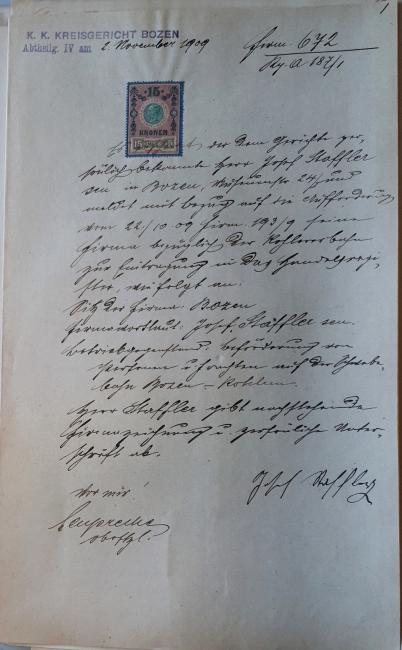 K. K. KREISGERICHT BOZEN
Abtheilg. IV am 2. November 1909
Firm. 672
Rg. A 187/1
15
KRONEN
Es erscheint der dem Gerichte per-
sönlich bekannte Herr Josef Staffler
sen. in Bozen, Museumstr 24 und
meldet mit Bezug auf die Aufforderung
vom 22/10 09 Firm. 193/9 seine
Firma bezüglich der Kohlererbahn
zur Eintragung in das Handelsregi-
ster, wie folgt an:
Sitz der Firma: Bozen
Firmawortlaut: Josef Staffler sen.
Betriebsgegenstand: Beförderung von
Personen u. Frachten auf der Schwebe-
bahn Bozen – Kohlern.
Herr Staffler gibt nachstehende
Firmazeichnung u. persönliche Unter-
schrift ab.
Vor mir!
Josef Staffler